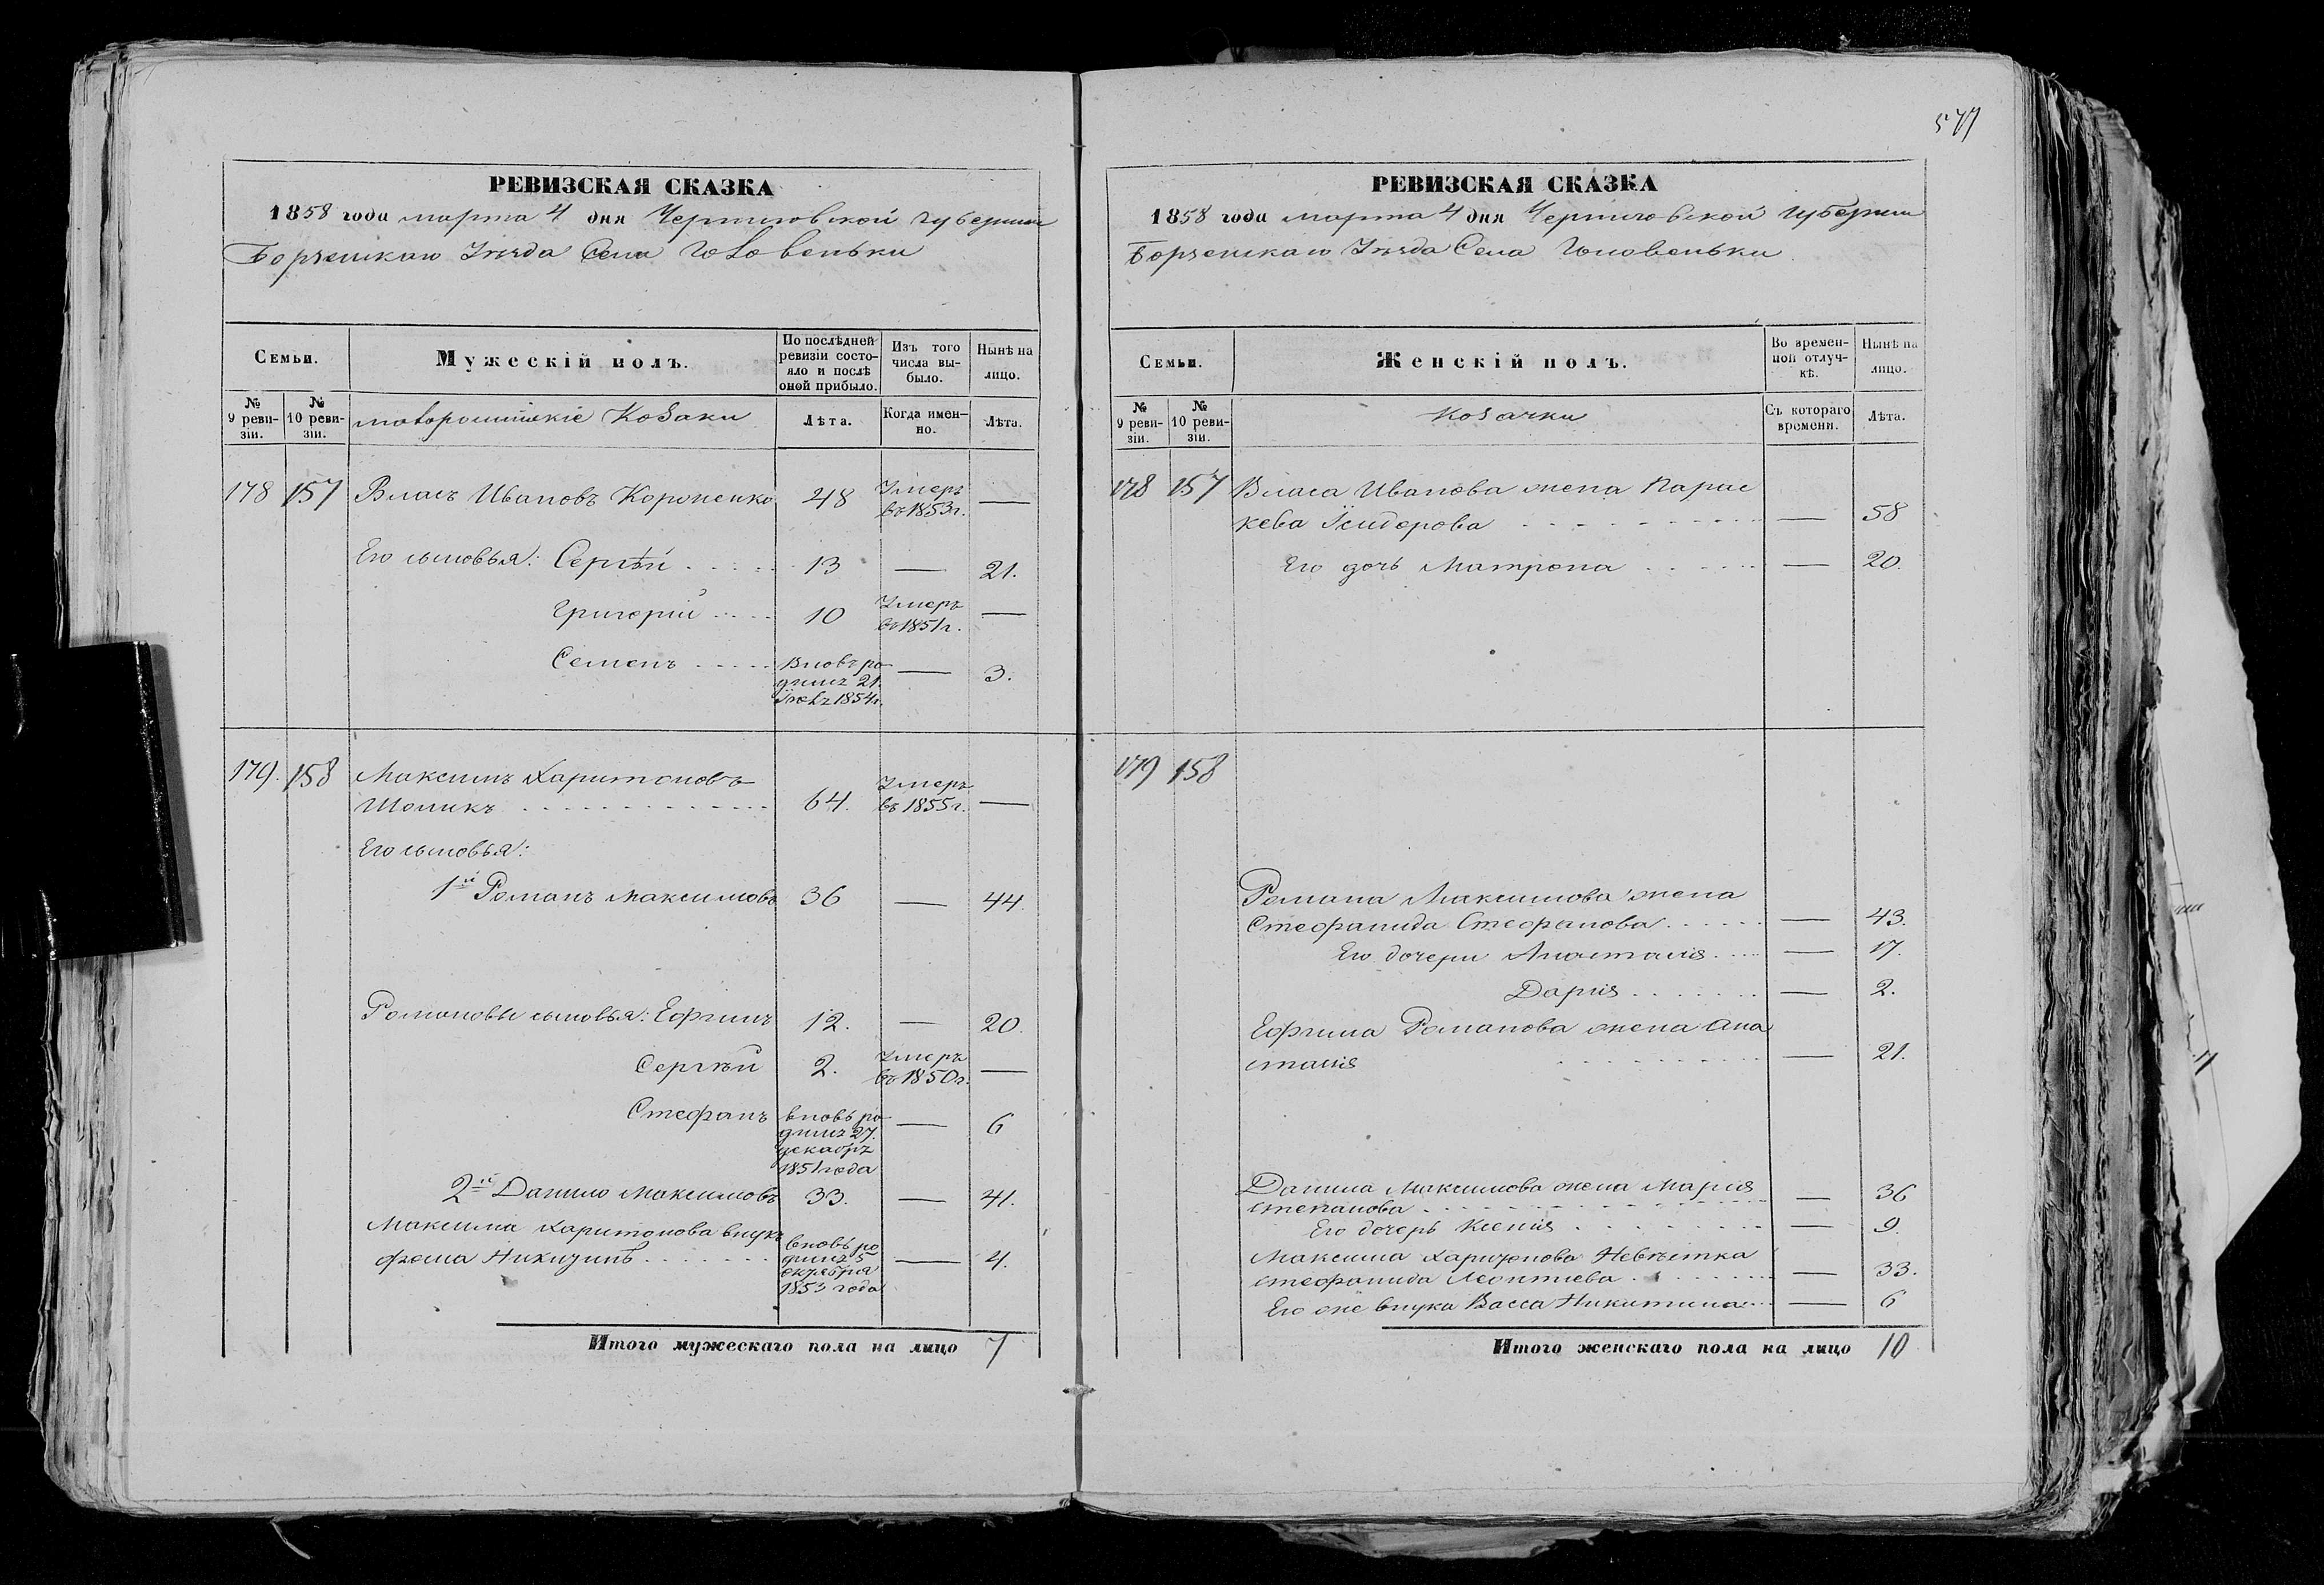 577
РЕВИЗСКАЯ СКАЗКА
1858 года марта 4 дня Черниговской губернии
Борзенскаго Уезда Села Головеньки
Семьи.
Мужескій полъ.
По послѣдней
ревизіи состо-
яло и послѣ
оной прибыло.
Изъ того
числа вы-
было.
Нынѣ на
лицо.
№
9 реви-
зіи.
№
10 реви-
зіи.
малороссійскіе Козаки
Лѣта.
Когда имен-
но.
Лѣта.
178 157 Власъ Ивановъ Короненко 48 Умеръ
въ 1853 г. —
Его сыновья: Сергѣй 13 — 21.
Григорій 10 Умеръ
въ 1851 г. —
Семенъ Вновь ро
дился 21 — 3.
1854 г.
179. 158 Максимъ Харитоновъ
64. Умеръ
въ 1855 г. —
Его сыновья:
1й Романъ Максимовъ 36 — 44.
Романовы сыновья: Ефимъ 12. — 20.
Сергѣй 2. Умеръ
въ 1850 г. —
Стефанъ вновь ро
дился 27. — 6
декабря
1851 года
2й Данило Максимовъ 33. — 41.
Максима Харитонова внукъ
Фома Никитинъ вновь ро
дился 5 — 4.
октября
1853 года
Итого мужескаго пола на лицо 7
РЕВИЗСКАЯ СКАЗКА
1858 года марта 4 дня Черниговской губернии
Борзенскаго Уезда Села Головеньки
Семьи.
Женскій полъ.
Во времен-
ной отлуч-
кѣ.
Нынѣ на
лицо.
№
9 реви-
зіи.
№
10 реви-
зіи.
Козачки
Съ котораго
времени.
Лѣта.
178 157 Власа Иванова жена Парас
кева Исидорова — 58
Его дочь Матрона — 20.
179 158
Романа Максимова жена
Стефанида Стефанова — 43.
Его дочери Анастасія — 17.
Дарія — 2.
Ефима Романова жена Ана
стасія — 21.
Данила Максимова жена Марія — 36
Степанова
Его дочерь Ксенія — 9.
Максима Харитонова Невѣстка
Стефанида Леонтиева — 33.
Его же внука Васса Никитина — 6
Итого женскаго пола на лицо 10